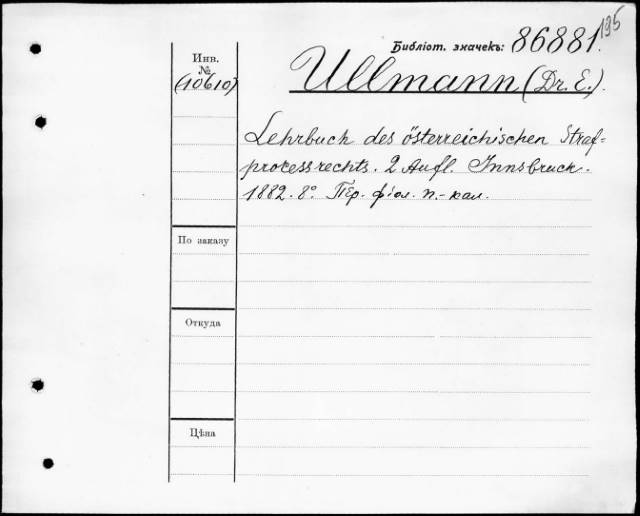 195
Библіот. значекъ: 86881.
Инв.
№
(40610)
Ullmann (Dr. E.).
Lehrbuch des österreichischen Straf=
processrechts. 2 Aufl. Innsbruck.
1882. 8°. Пер. фіол. п.-кал.
По заказу
Откуда
Цѣна